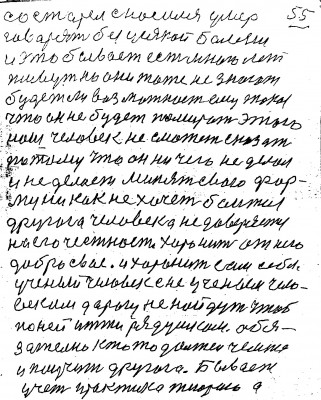 состарел сносился умер 55
говарят без всякой Болезни
и это бывает есть много лет
живут но они тоже не знают
будет ли возможность ему
что он не будет помирать этого
наш человек не сможет сказать
потому что он ни чего не делал
и не делает
мы никак не хочет
другога человека не доверяет
на его честность. хоронит от него
добро свае. и хоронит сам себя.
ученый человек с не ученым чело-
веком дарогу не найдут чтоб
по ней итти рядушком. обя-
зательно кто то должен
и поучать другога. Бывает
учет практика а